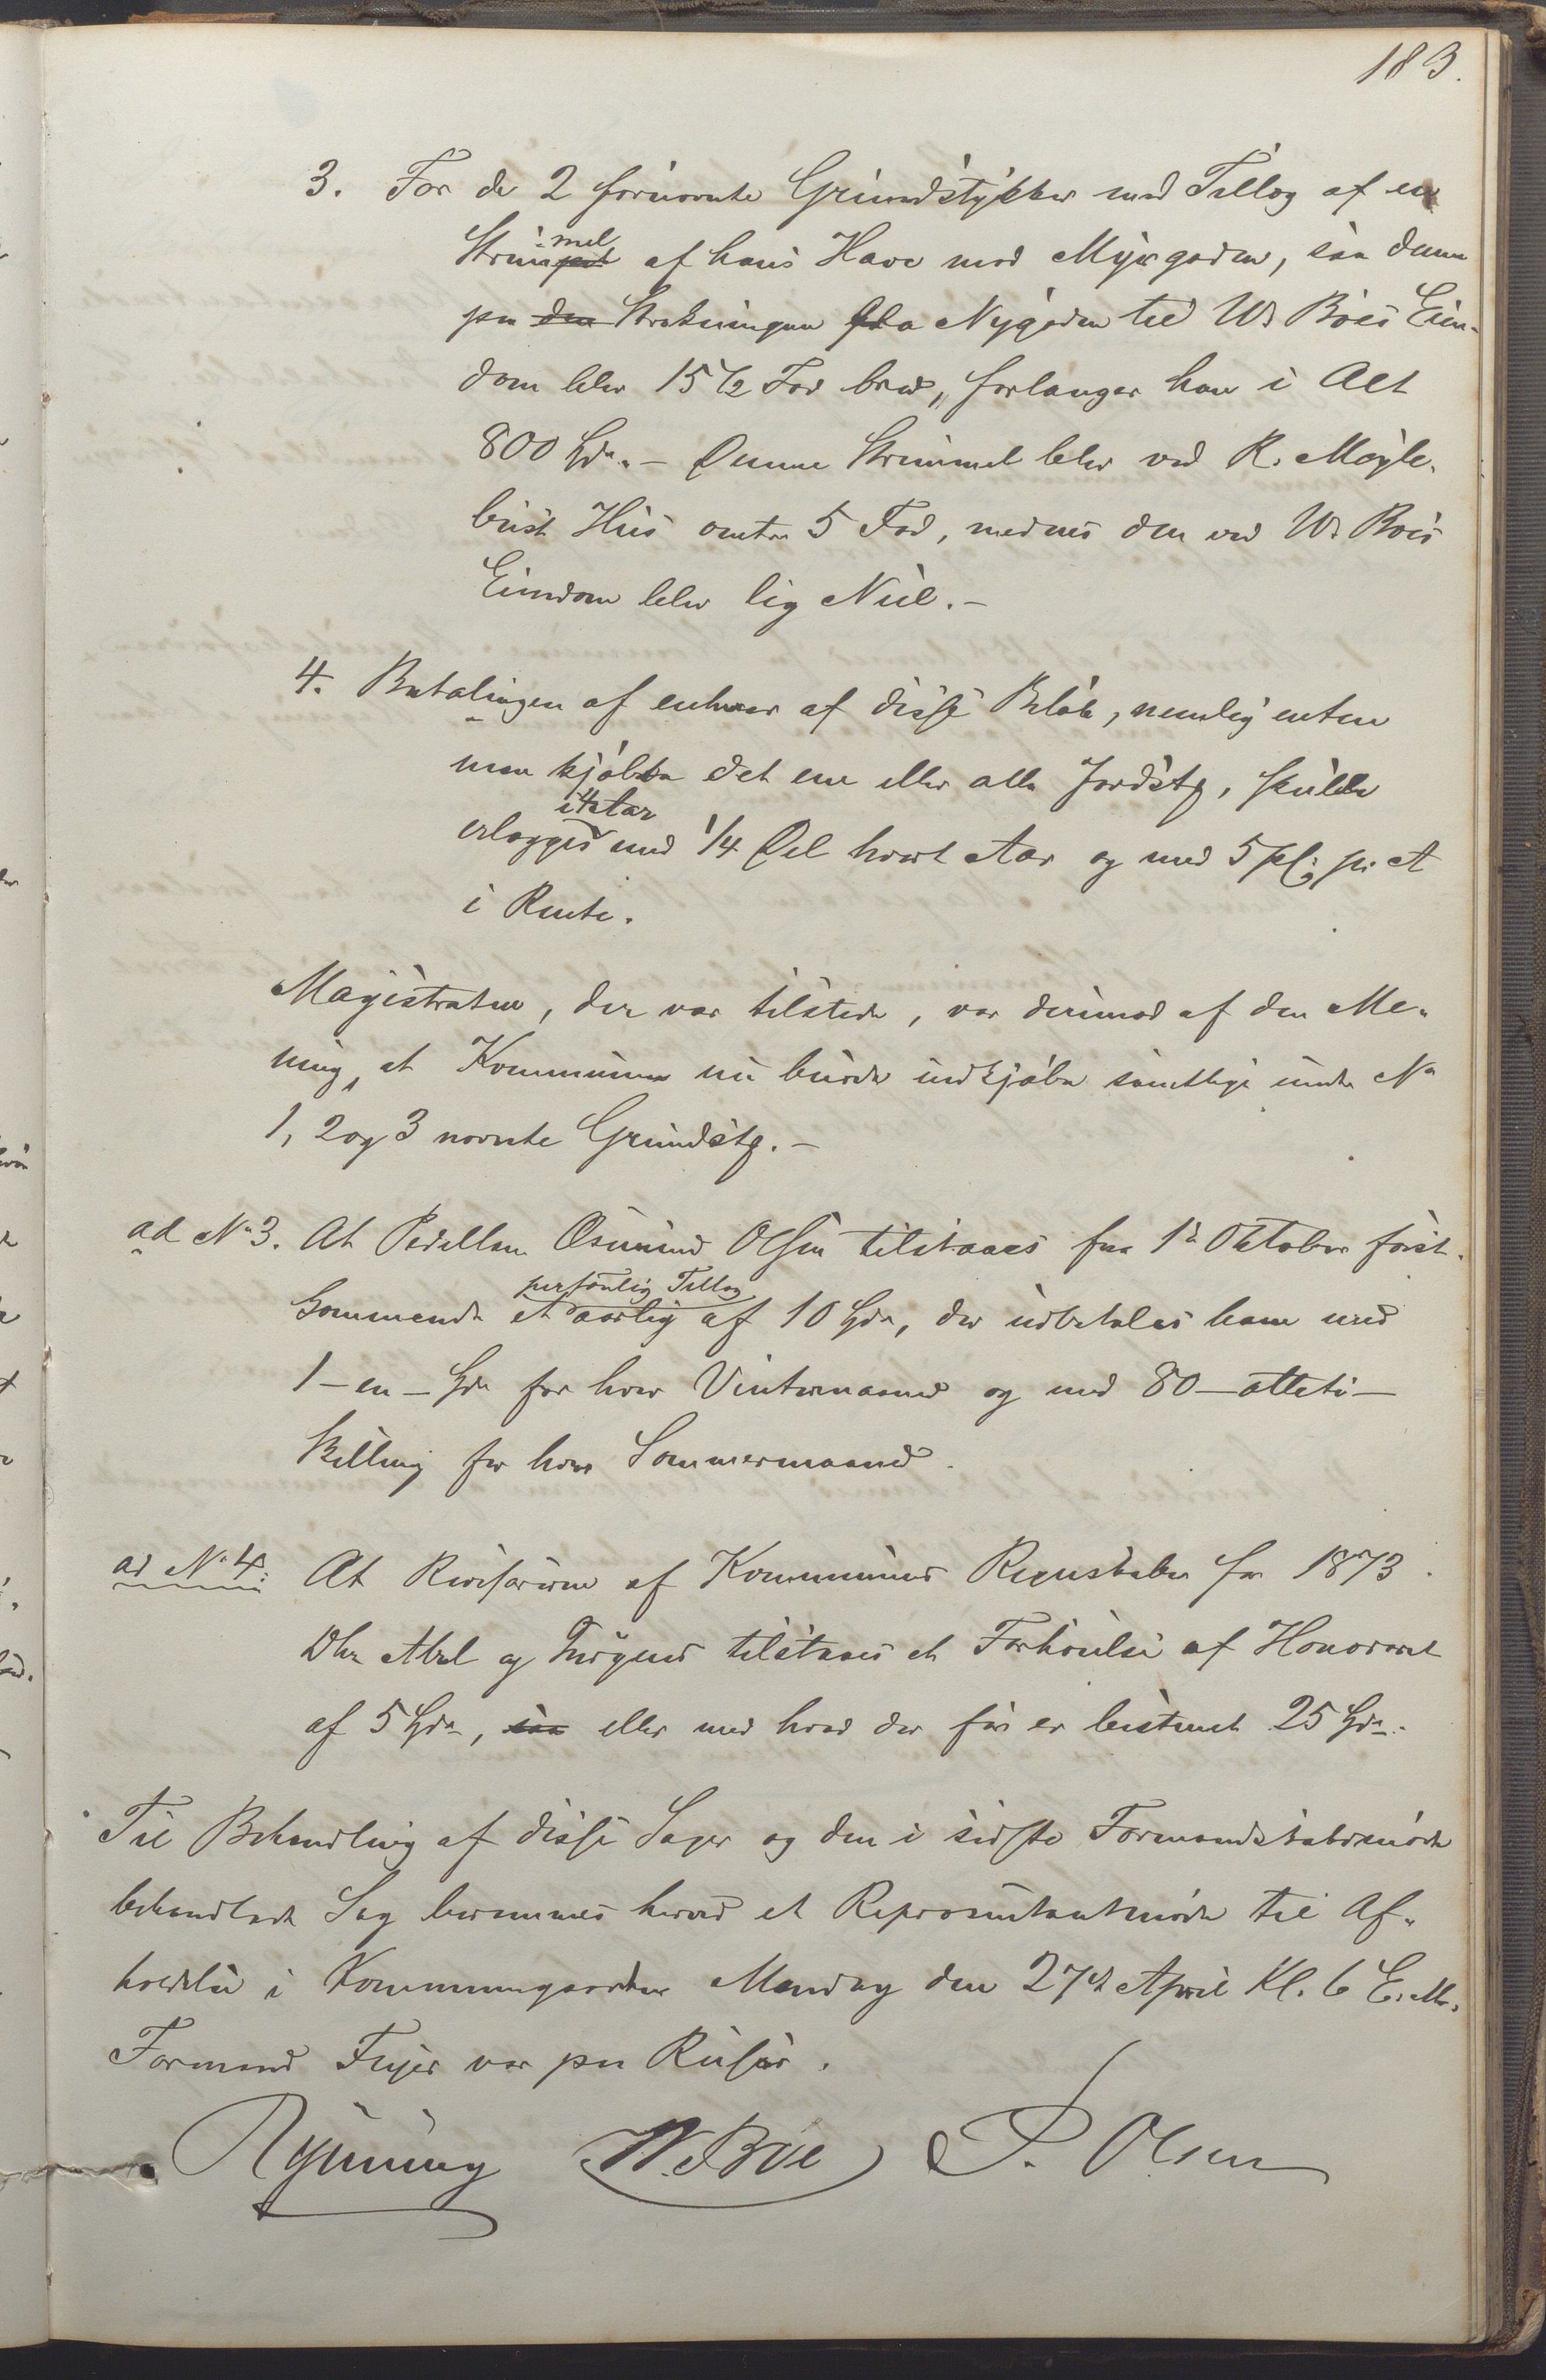 183.
3. For de 2 fornævnte Grundstykker med Tillæg af en
Strimmel af hans Have mod Myrgaden, saa denne
paa den Strækningen fra Nygaden til W. Böes Eien-
dom bliver 15 1/2 Fod bred, forlanger han i Alt
800 Spd. – Denne Strimmel bliver ved R. Mögle-
bust Hus omtr. 5 Fod, medens den ved W. Böes
Eiendom bliver lig Nul. –
4. Betalingen af enhver af disse Beløb, nemlig enten
man kjøber det ene eller alle Jordstkr, skulde
erlægges i 4 Aar med 1/4 Del hvert Aar og med 5 pCt. pr. A
i Rente.
Magistraten, der var tilstede, var derimod af den Me-
ning, at Kommunen nu burde indkjøbe samtlige under No
1, 2 og 3 nævnte Grundstkr. –
ad No 3. At Pedellen Osmund Olsen tilstaaes fra 1ste Oktober först-
kommende et aarlig personlig Tillæg af 10 Spd, der udbetales ham med
1 – en – Spd for hver Vintermaaned og med 80 – otteti –
Skilling for hver Sommermaaned.
ad No 4. At Revisorerne af Kommunens Regnskaber for 1873
Dhr. Abel og tilstaaes en Forhöielse af Honoraret
af 5 Spd, saa eller med hvad der för er bestemt 25 Spd.
Til Behandling af disse Sager og den i sidste Formandskabsmöde
behandlede Sag berammes herved et Repræsentantmöde til Af-
holdelse i Kommunegaarden Mandag den 27de April Kl. 6 E.M.
Formand Feyer var paa Reiser.
Rynning W. Böe S. Olsen